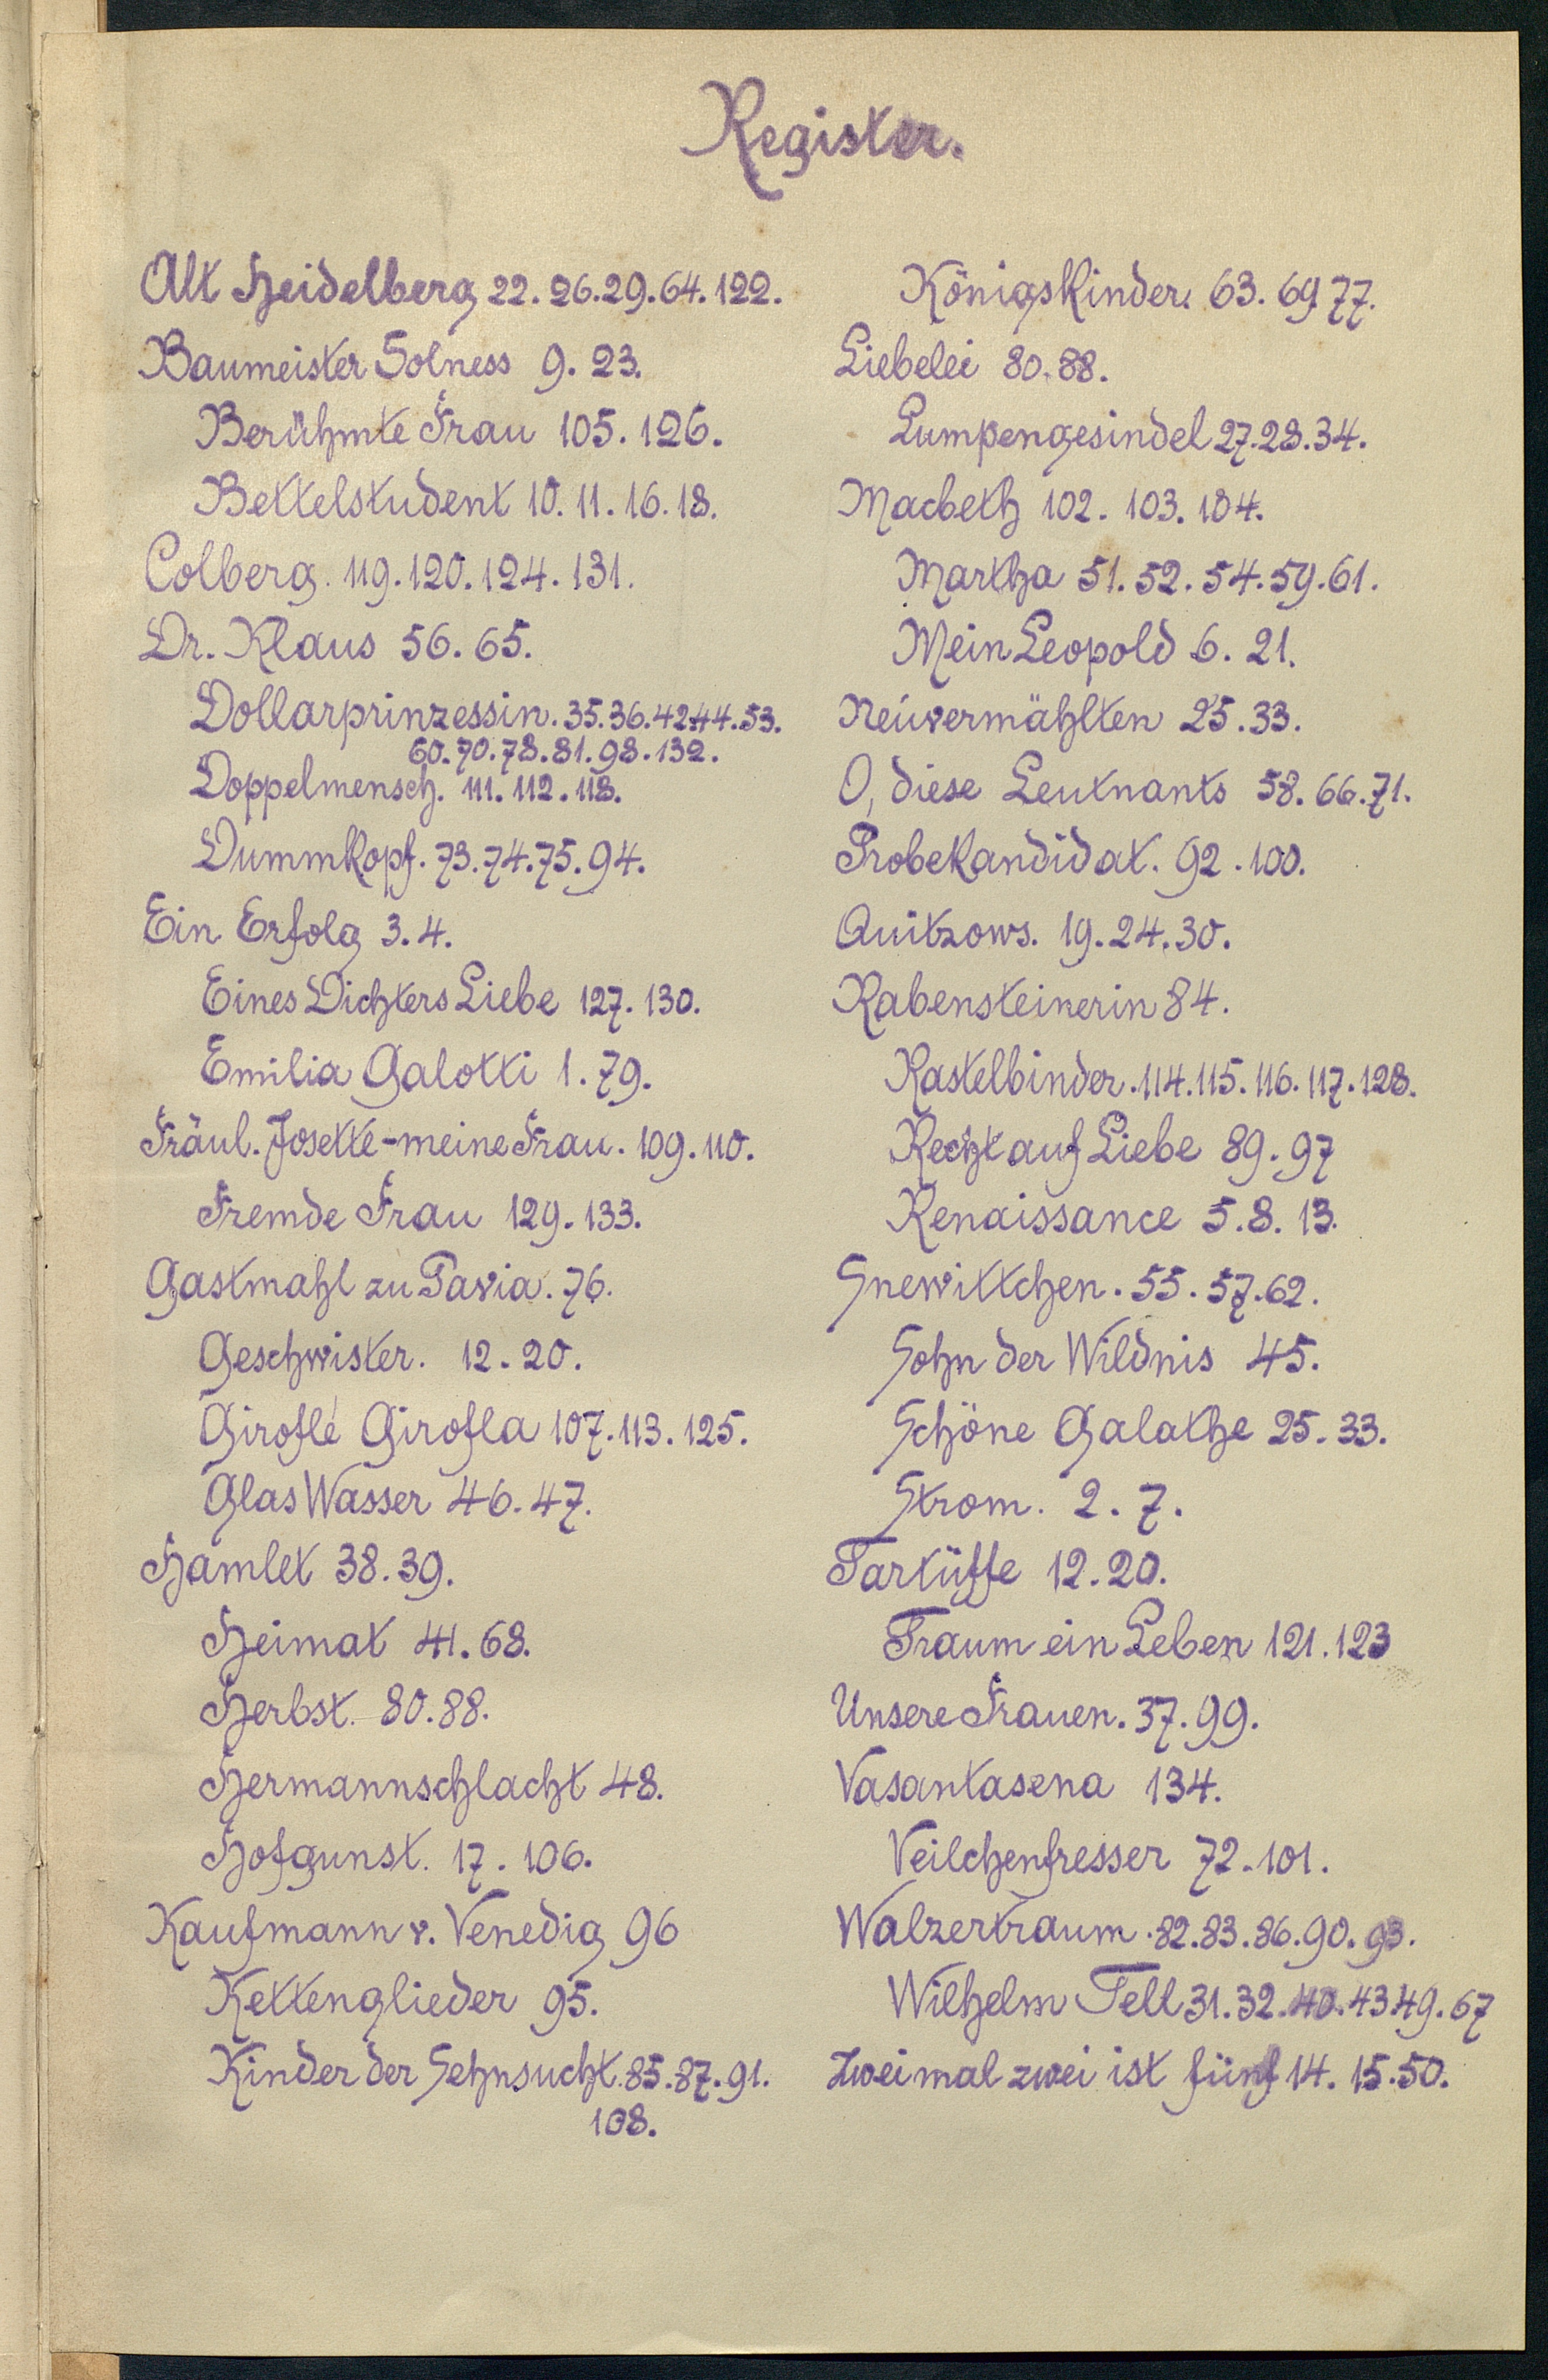 Register.
Alt Heidelberg 22. 26. 29. 64. 122.
Baumeister Solness 9. 23.
Berühmte Frau 105. 126.
Bettelstudent 10. 11. 16. 18.
Colberg. 119. 120. 124. 131.
Dr. Klaus 56. 65.
Dollarprinzessin. 35. 36. 42. 44. 53.
60. 70. 78. 81. 98. 132.
Doppelmensch. 111. 112. 118.
Dummkopf. 73. 74. 75. 94.
Ein Erfolg 3. 4.
Eines Dichters Liebe 127. 130.
Emilia Galotti 1. 79.
Fräul. Josette - meine Frau. 109. 110.
Fremde Frau 129. 133.
Gastmahl zu Pavia. 76.
Geschwister. 12. 20.
Giroflé Girofla 107. 113. 125.
Glas Wasser 46. 47.
Hamlet 38. 39.
Heimat 41. 68.
Herbst. 80. 88.
Hermannschlacht 48.
Hofgunst. 17. 106.
Kaufmann v. Venedig 96
Kettenglieder 95.
Kinder der Sehnsucht. 85. 87. 91.
108.
Königskinder. 63. 69 77.
Liebelei 80. 88.
Lumpengesindel 27. 28. 34.
Macbeth 102. 103. 104.
Martha 51. 52. 54. 59. 61.
Mein Leopold 6. 21.
Neuvermählten 25. 33.
O, diese Leutnants 58. 66. 71.
Probekandidat. 92. 100.
Quitzows. 19. 24. 30.
Rabensteinerin 84.
Rastelbinder. 114. 115. 116. 117. 128.
Recht auf Liebe 89. 97
Renaissance 5. 8. 13.
Snewittchen. 55. 57. 62.
Sohn der Wildnis 45.
Schöne Galathe 25. 33.
Strom. 2. 7.
Tartüffe 12. 20.
Traum ein Leben 121. 123
Unsere Frauen. 37. 99.
Vasantasena 134.
Veilchenfresser 72. 101.
Walzertraum. 82. 83. 86. 90. 93.
Wilhelm Tell 31. 32. 40. 43 49. 67
Zweimal zwei ist fünf 14. 15. 50.